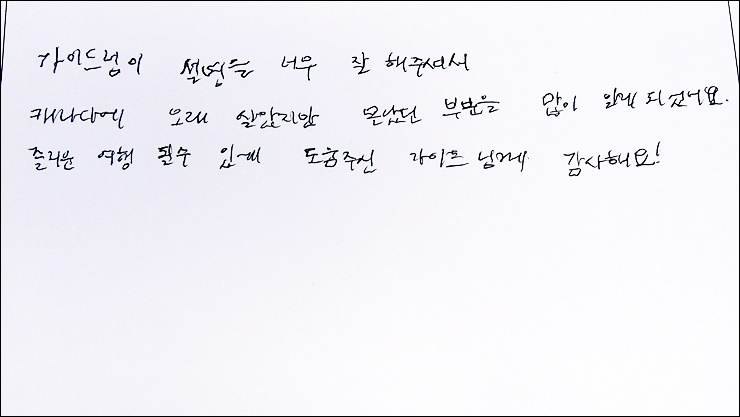 가이드님이 설명을 너무 잘 해주셔서
캐나다에 오래 살았지만 몰랐던 부분을 많이 알게 되었네요.
즐거운 여행 될수 있게 도움주신 가이드님께 감사해요!